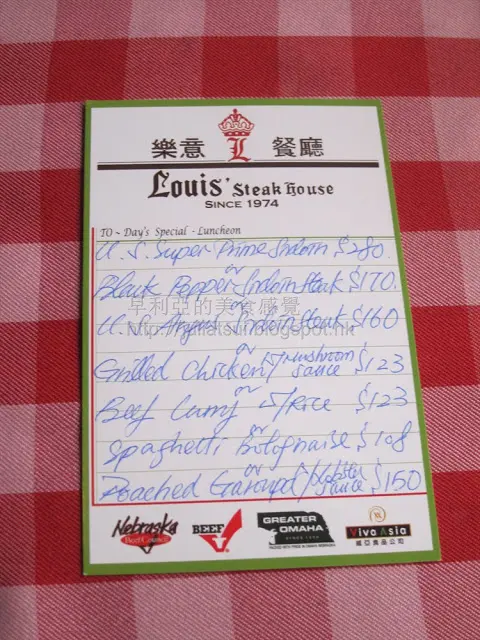 樂意 L 餐廳
Louis' Steak House
SINCE 1974
TO~Day's Special - Luncheon
U.S. Super Prime Sirloin $280
or
Black Pepper Sirloin Steak $170.
or
早利亞的美食感覺
U.S. Angus Sirloin Steak $160
or
Grilled Chicken / mushroom sauce $123
or
Beef Curry / Rice $123
or
Spaghetti Bolognaise $108
or
Poached Garoupa / lobster sauce $150
Nebraska
Beef Council
BEEF
GREATER OMAHA
SINCE 1920
Viva Asia
威亞食品公司